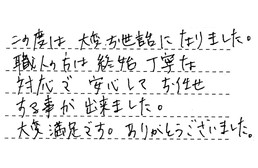 この度は 大変お世話に なりました。
職人の方は 終始 丁寧な
対応で 安心して お任せ
する事が 出来ました。
大変満足です。ありがとうございました。